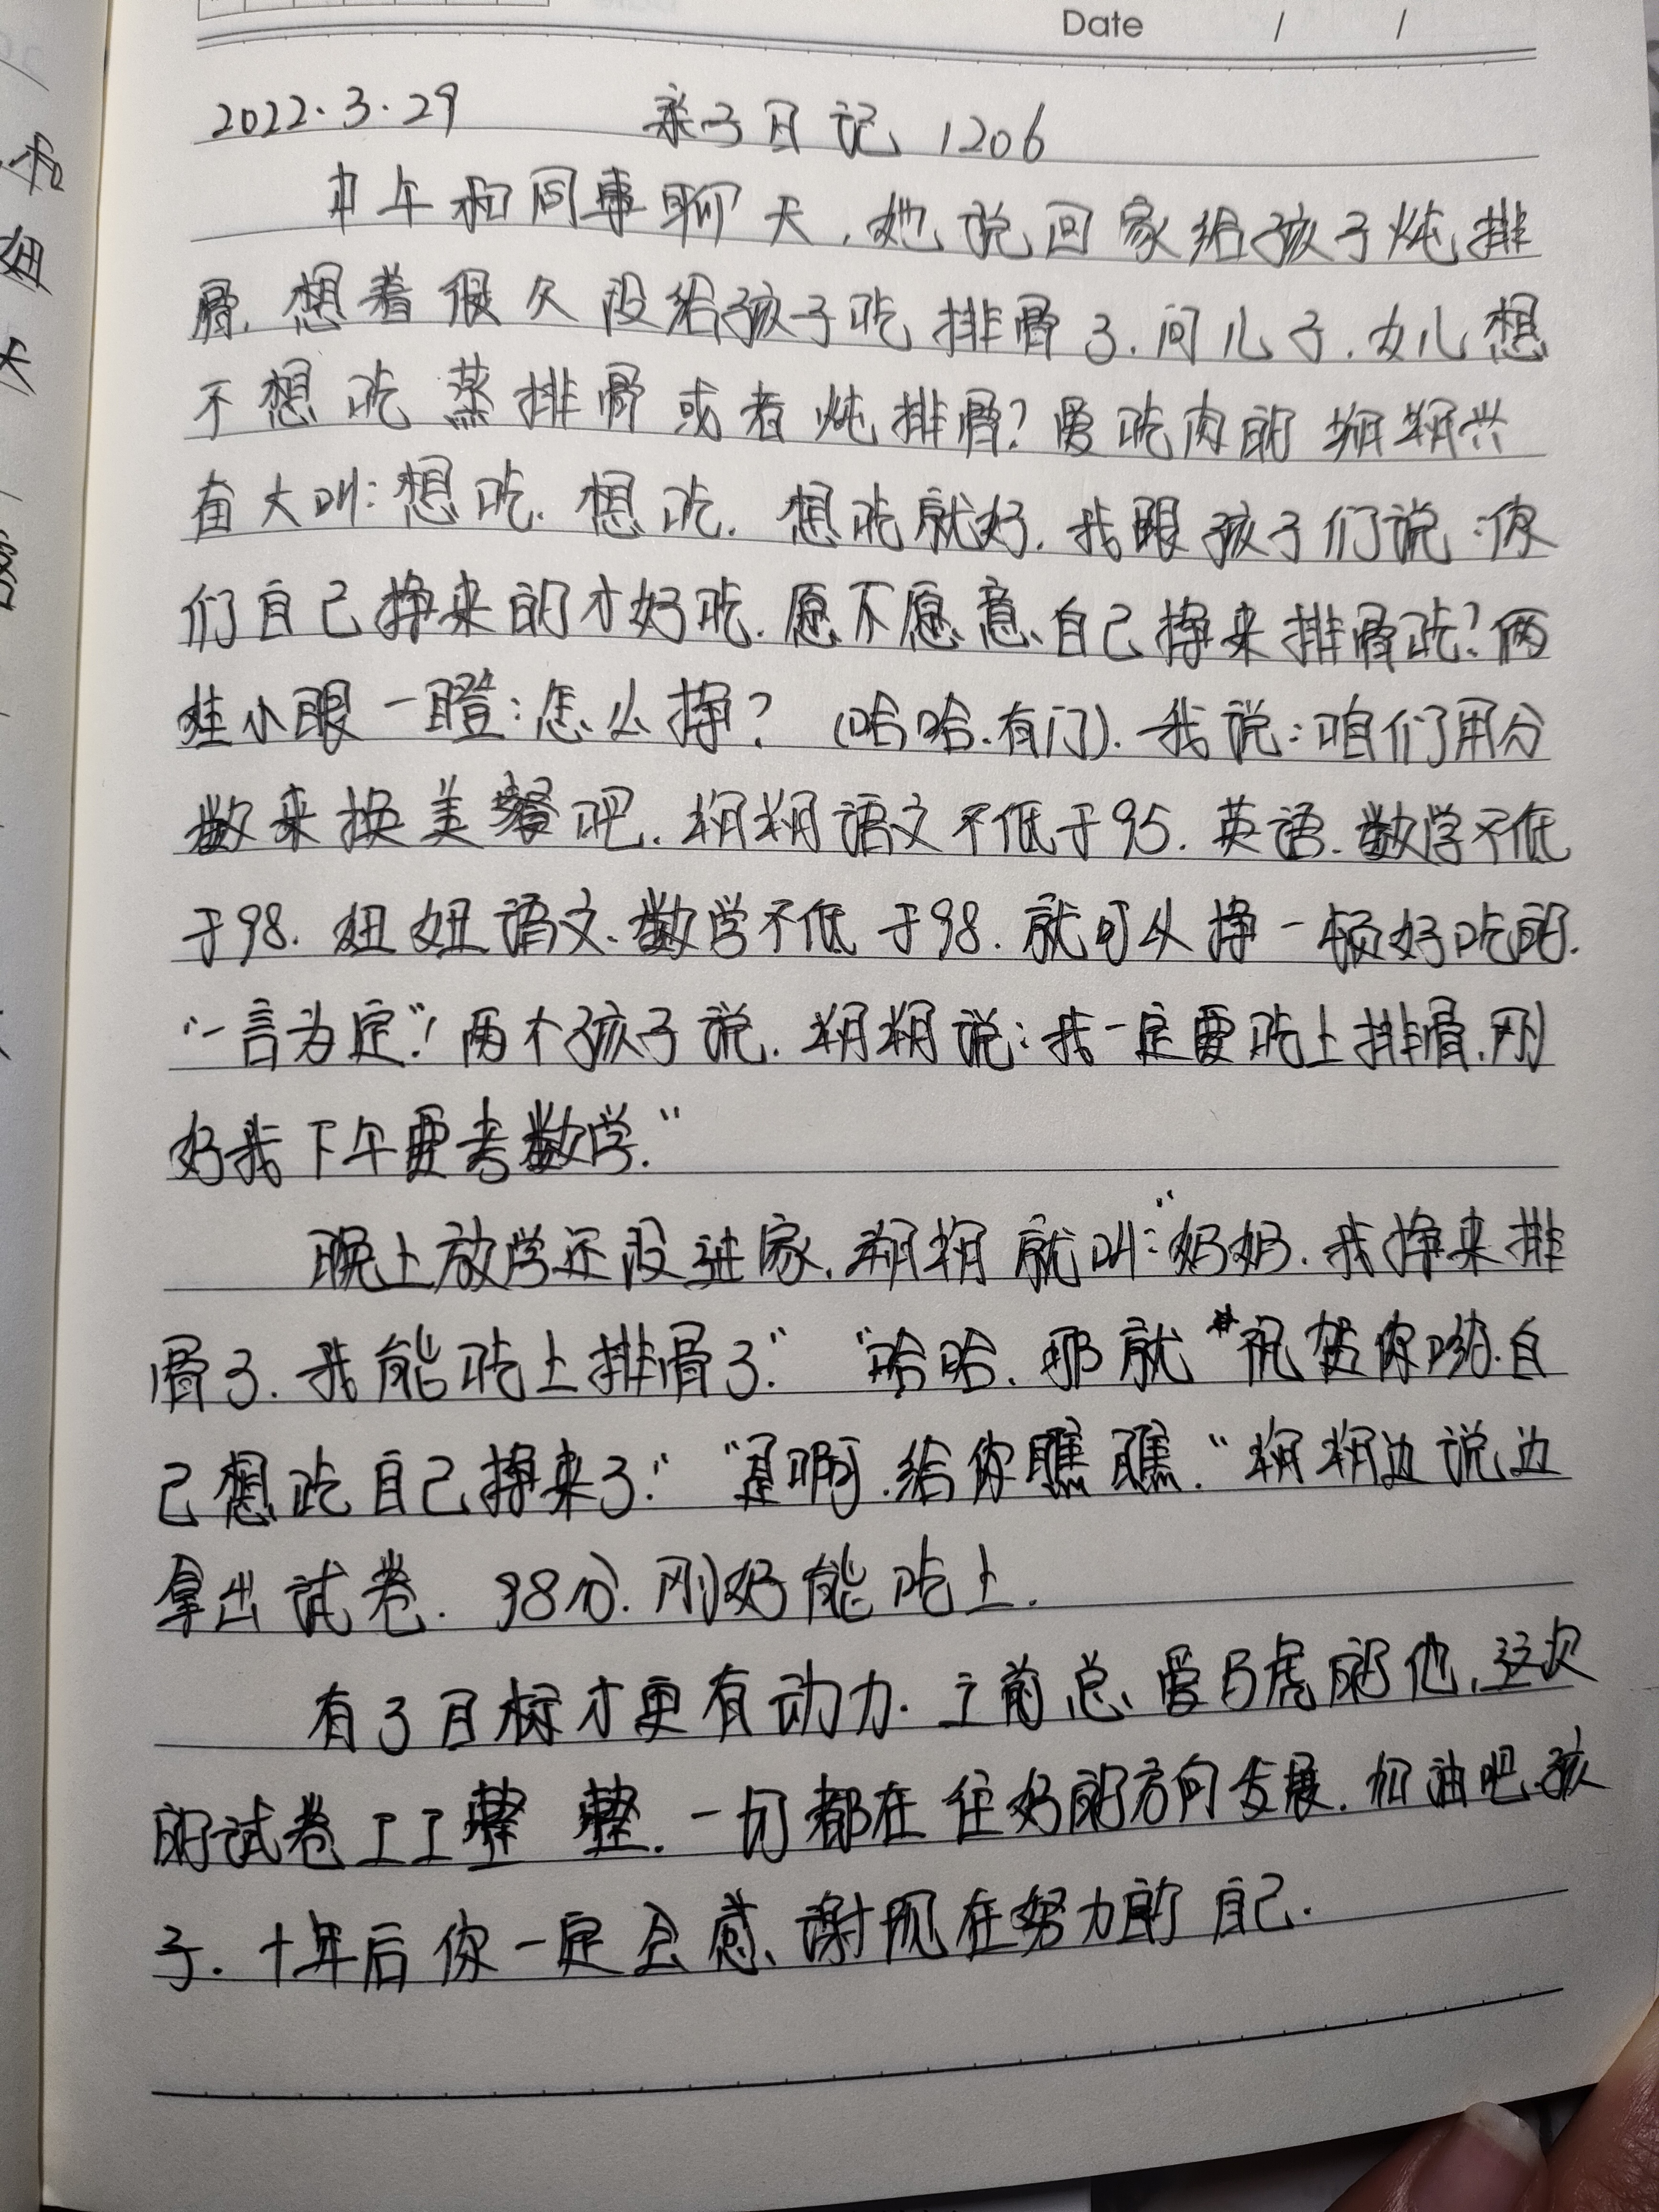 Date / /
2022.3.29 亲子日记 1206
中午和同事聊天,她说回家给孩子炖排
骨,想着很久没给孩子吃排骨了.问儿子.女儿想
不想吃蒸排骨或者炖排骨?爱吃肉的翔翔兴
奋大叫:想吃.想吃.想吃就好.我跟孩子们说:你
们自己挣来的才好吃.愿不愿意自己挣来排骨吃?俩
娃小眼一瞪:怎么挣?(哈哈.有门).我说:咱们用分
数来换美餐吧.翔翔语文不低于95.英语.数学不低
于98.妞妞语文.数学不低于98.就可以挣一顿好吃的.
"一言为定"!两个孩子说.翔翔说:我一定要吃上排骨.刚
好我下午要考数学."
晚上放学还没进家.翔翔就叫:"奶奶.我挣来排
骨了.我能吃上排骨了." "哈哈.那就祝贺你哟.自
己想吃自己挣来了." "是啊.给你瞧瞧."翔翔边说边
拿出试卷.98分.刚好能吃上.
有了目标才更有动力.之前总爱马虎的他,这次
的试卷工工整整.一切都在往好的方向发展.加油吧.孩
子.十年后你一定会感谢现在努力的自己.